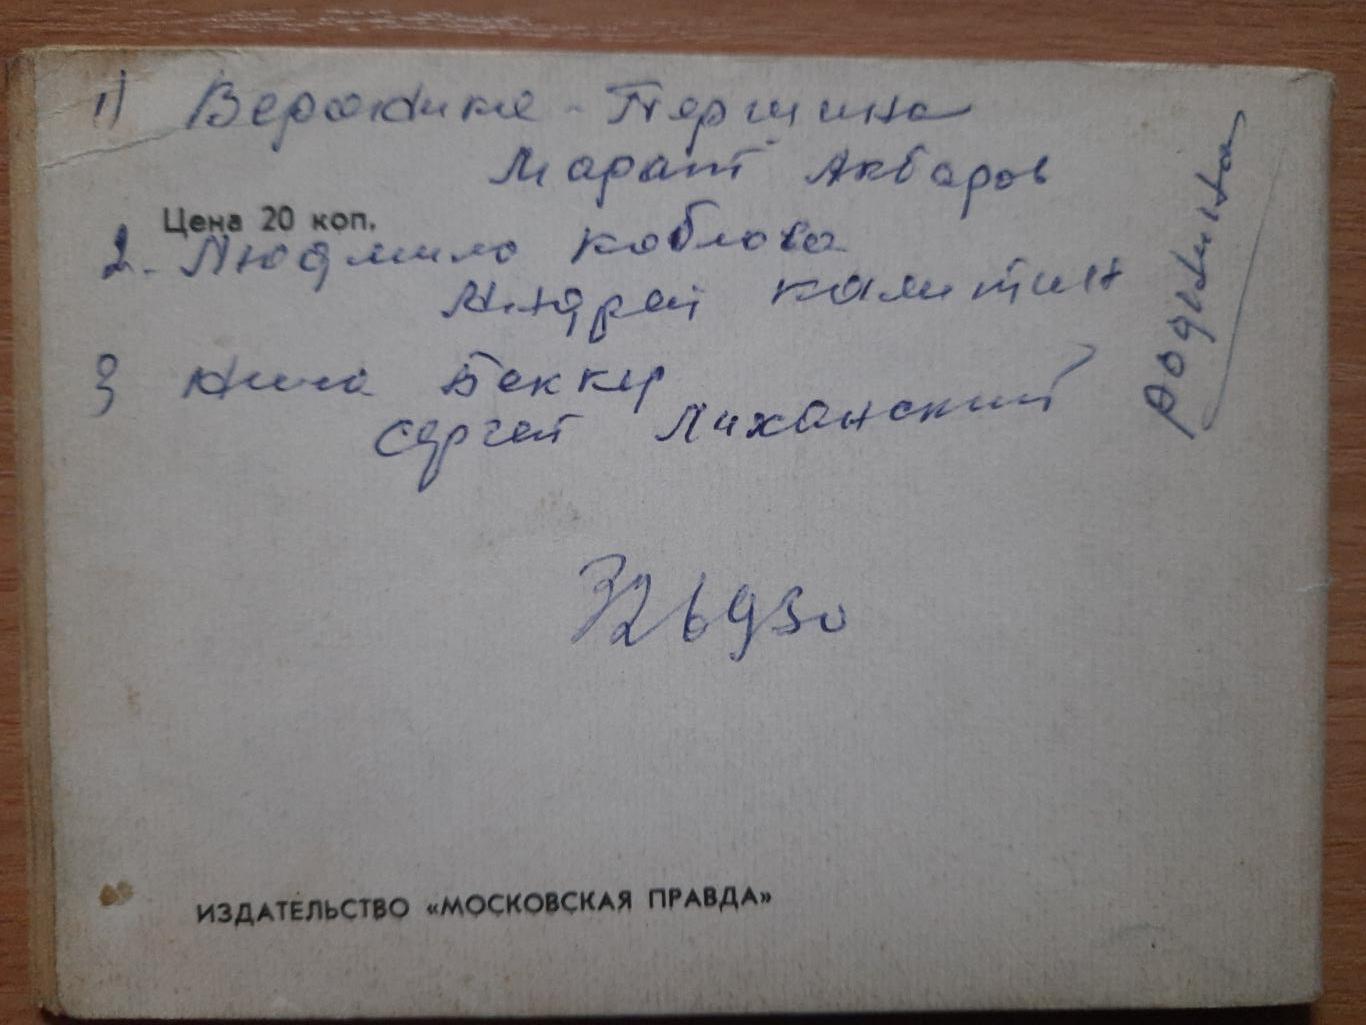 1) Вероника - Першина
Марат Акбаров
Цена 20 коп.
2. Людмила Коблова
Андрей Калитин
3 Нина Беккер
Сергей Лиханский
Роднина
326930
ИЗДАТЕЛЬСТВО «МОСКОВСКАЯ ПРАВДА»